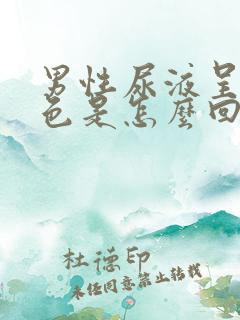 男性尿液呈
色是怎麼回
杜德印
未经同意禁止转载